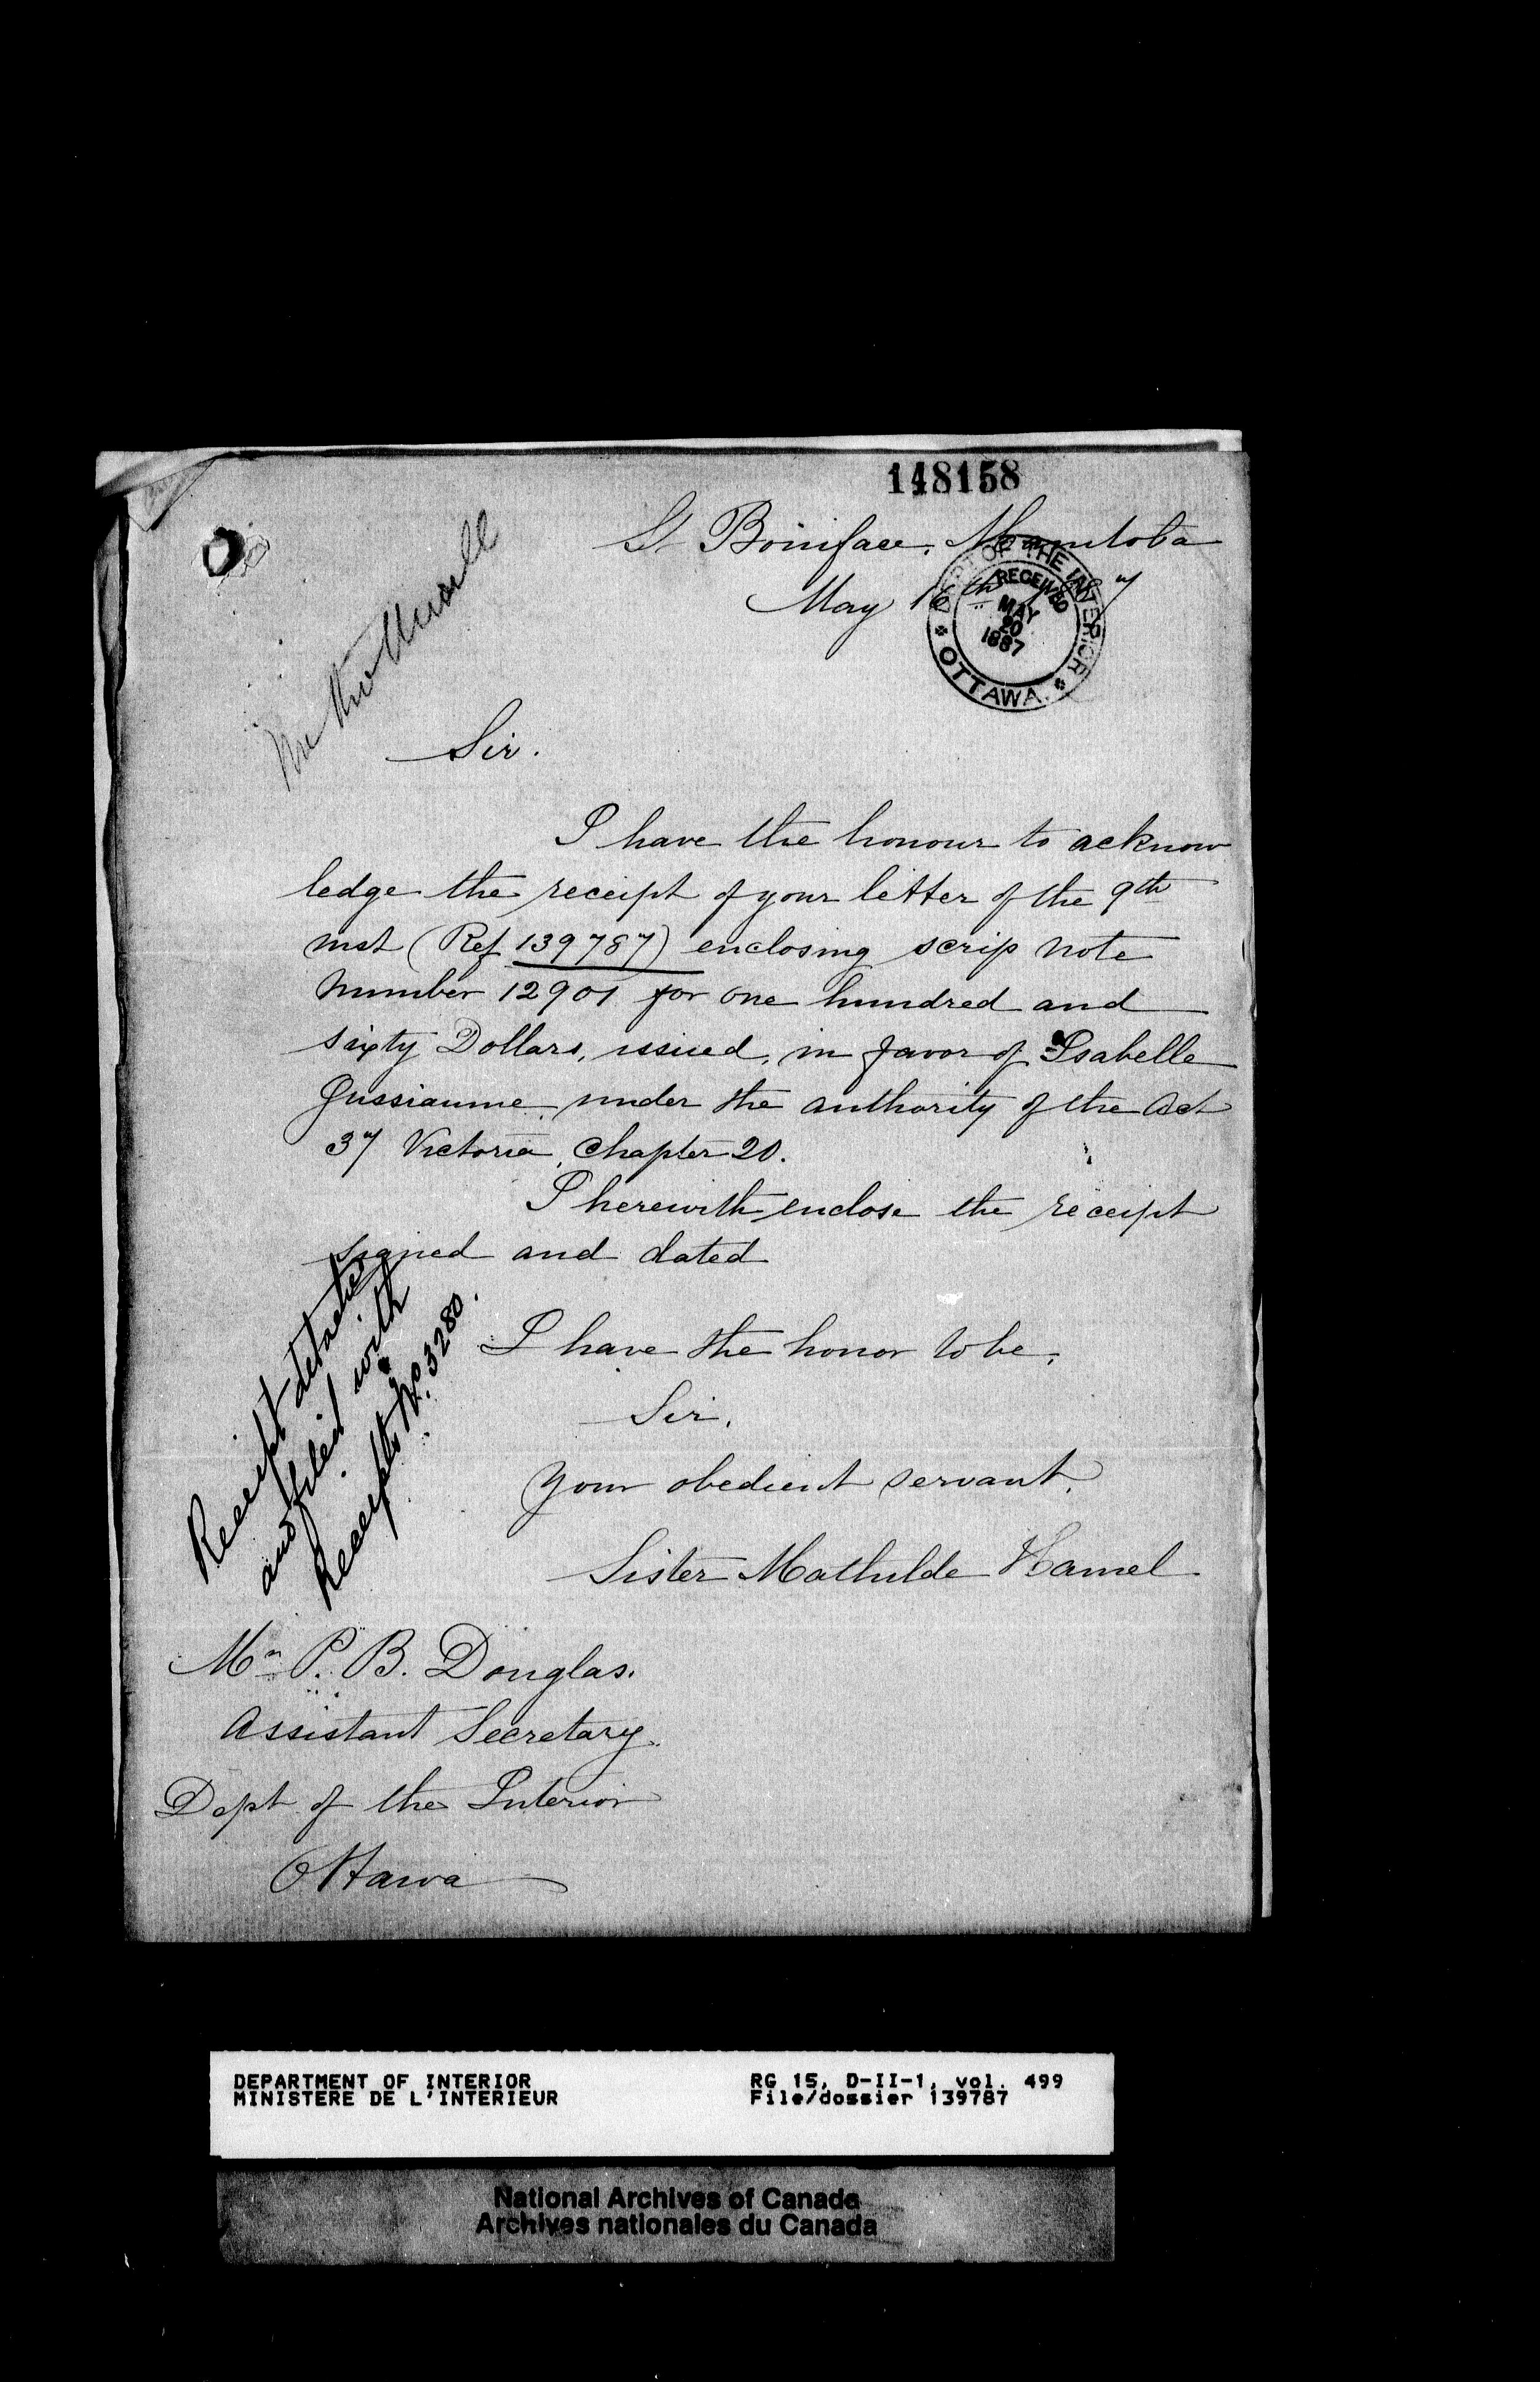 148158
St Boniface, Manitoba
May 16th 7
DEPT OF THE INTERIOR
RECEIVED
MAY
20
1887
OTTAWA.
Sir.
I have the honour to acknow
ledge the receipt of your letter of the 9th
inst (Ref 139787) enclosing scrip note
number 12901 for one hundred and
sixty Dollars, issued, in favor of Isabelle
Jussiaume, under the authority of the Act
37 Victoria, Chapter 20.
I herewith enclose the receipt
signed and dated
Receipt detached
and filed with
Receipts No. 3280.
I have the honor to be,
Sir,
Your obedient servant,
Sister Mathilde Hamel
Mr P. B. Douglas.
Assistant Secretary.
Dept of the Interior
Ottawa
DEPARTMENT OF INTERIOR
MINISTERE DE L'INTERIEUR
RG 15, D-II-1, vol. 499
File/dossier 139787
National Archives of Canada
Archives nationales du Canada